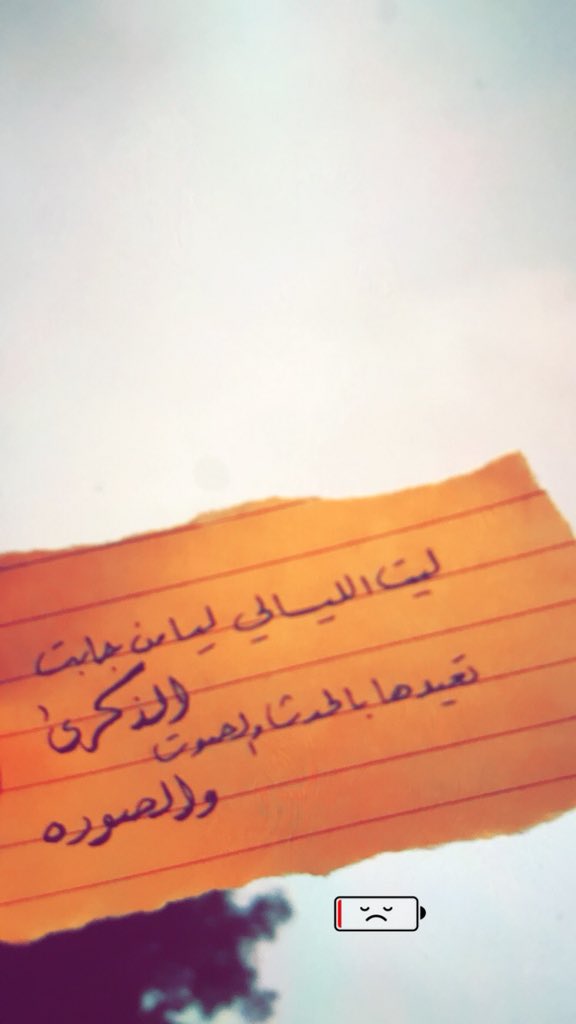 ليت الليالي ليا من جابت
الذكرى
تعيدها بالحدث والصوت
والصوره